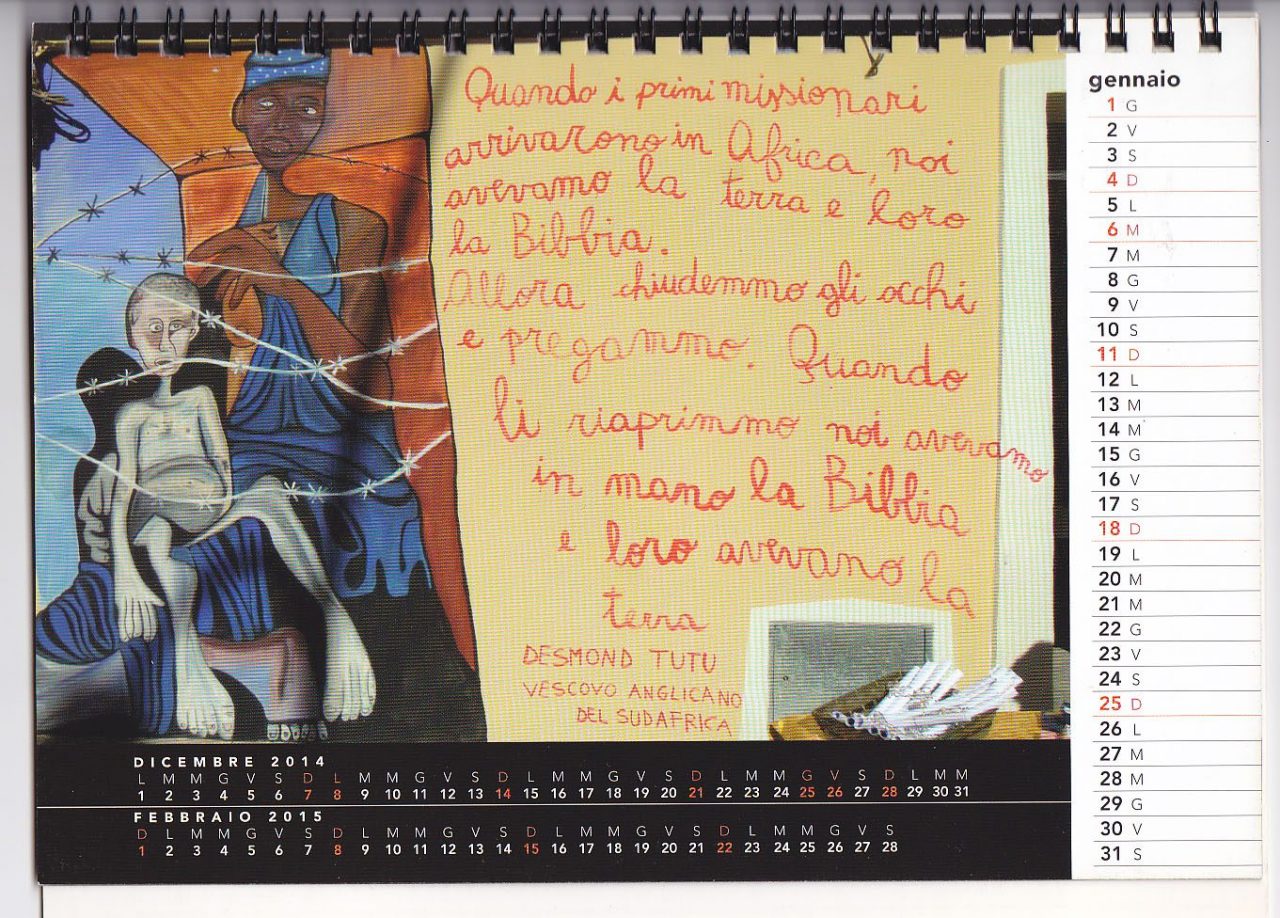 Quando i primi missionari
arrivarono in Africa, noi
avevamo la terra e loro
la Bibbia.
Allora chiudemmo gli occhi
e pregammo. Quando
li riaprimmo noi avevamo
in mano la Bibbia
e loro avevano la
terra
DESMOND TUTU
VESCOVO ANGLICANO
DEL SUDAFRICA
gennaio
1 G
2 V
3 S
4 D
5 L
6 M
7 M
8 G
9 V
10 S
11 D
12 L
13 M
14 M
15 G
16 V
17 S
18 D
19 L
20 M
21 M
22 G
23 V
24 S
25 D
26 L
27 M
28 M
29 G
30 V
31 S
DICEMBRE 2014
L M M G V S D L M M G V S D L M M G V S D L M M G V S D L M M
1 2 3 4 5 6 7 8 9 10 11 12 13 14 15 16 17 18 19 20 21 22 23 24 25 26 27 28 29 30 31
FEBBRAIO 2015
D L M M G V S D L M M G V S D L M M G V S D L M M G V S
1 2 3 4 5 6 7 8 9 10 11 12 13 14 15 16 17 18 19 20 21 22 23 24 25 26 27 28